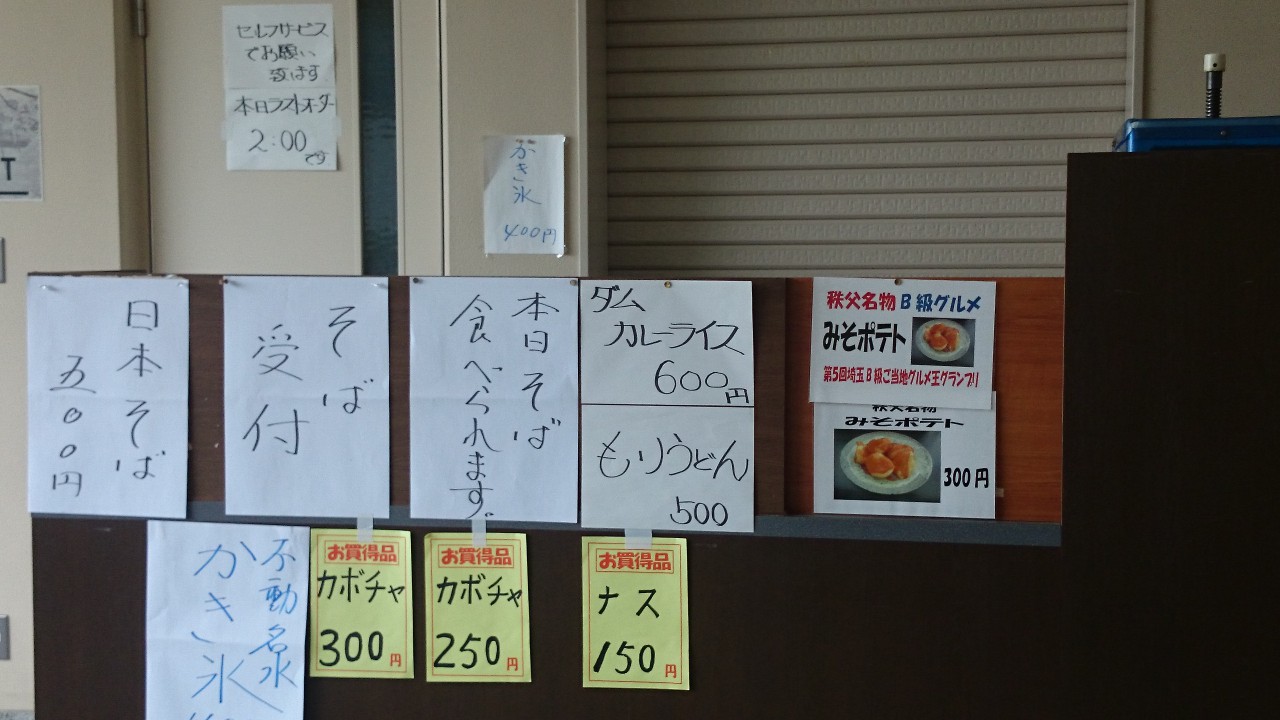 セルフサービス
でお願い
致します
本日ラストオーダー
2:00
です
かき氷
400円
T
日本そば
五〇〇円
そば
受付
本日そば
食べられます
ダム
カレーライス
600円
もりうどん
500
秩父名物B級グルメ
みそポテト
第5回埼玉B級ご当地グルメ王グランプリ
秩父名物
みそポテト
300円
不動名水
かき氷
お買得品
カボチャ
300円
お買得品
カボチャ
250円
お買得品
ナス
150円